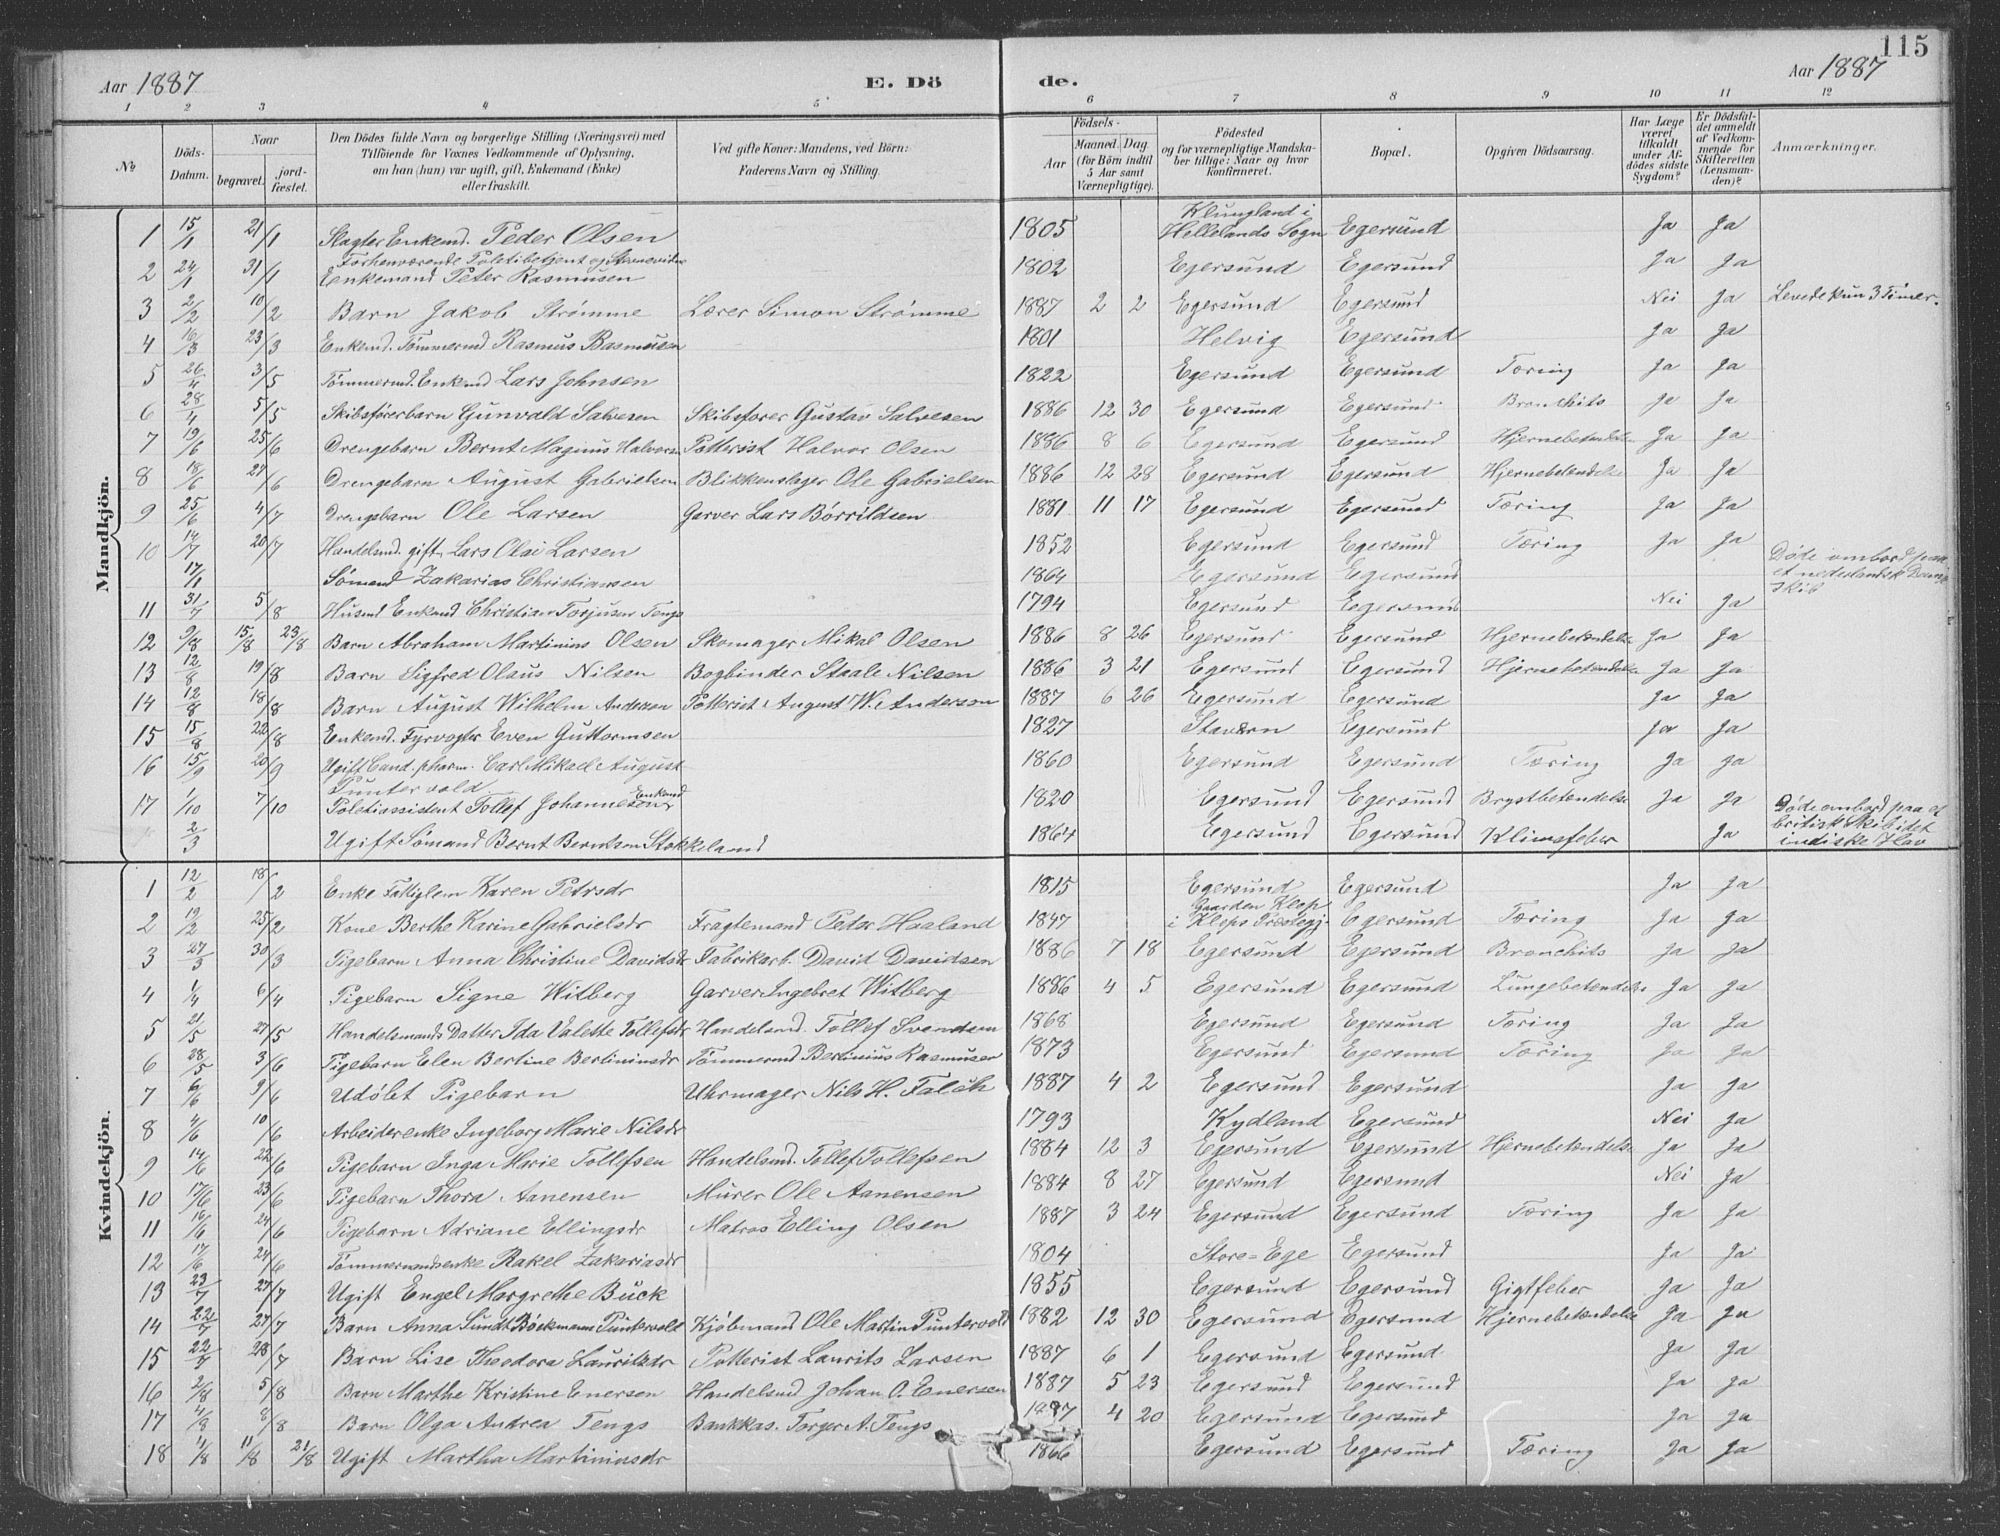 115
Aar 1887
E. Dö
de.
Aar 1887
1 2 3 4 5 6 7 8 9 10 11 12
No
Döds-Datum.
Naar
begravet.
jord-fæstet.
Den Dödes fulde Navn og borgerlige Stilling (Næringsvei) med
Tilföiende for Voxnes Vedkommende af Oplysning,
om han (hun) var ugift, gift, Enkemand (Enke)
eller fraskilt.
Ved gifte Koner: Mandens, ved Börn:
Faderens Navn og Stilling.
Födsels-
Aar
Maaned. Dag
(for Börn indtil
5 Aar samt
Værnepligtige).
Födested
og for værnepligtige Mandska-
ber tillige: Naar og hvor
konfirmeret.
Bopæl.
Opgiven Dödsaarsag.
Har Læge
været
tilkaldt
under Af-
dödes sidste
Sygdom?
Er Dödsfal-
det anmeldt
af Vedkom-
mende for
Skifteretten
(Lensman-
den)?
Anmærkninger.
Mandkjön.
1 15/1 21/1 Slagter Enkemd. Peder Olsen 1805 Klungland i Hellelands Sogn Egersund Ja Ja
2 24/1 31/1 Forhenværende Politibetjent og Enkemand Peter Rasmusen 1802 Egersund Egersund Ja Ja
3 2/2 10/2 Barn Jakob Strømme Lærer Simon Strømme 1887 2 2 Egersund Egersund Nei Ja Levede kun 3 Timer.
4 16/3 23/3 Enkemd. Tømmermd Rasmus Rasmusen 1801 Helvig Egersund Ja Ja
5 26/4 3/5 Tømmermd. Enkemd Lars Johnsen 1822 Egersund Egersund Tæring Ja Ja
6 28/4 5/5 Skibsførerbarn Gunvald Salvesen Skibsfører Gustav Salvesen 1886 12 30 Egersund Egersund Bronchits Ja Ja
7 19/6 25/6 Drengebarn Bernt Magnus Halvorsen Potterist Halvor Olsen 1886 8 6 Egersund Egersund Hjernebetændelse Ja Ja
8 18/6 27/6 Drengebarn August Gabrielsen Blikkenslager Ole Gabrielsen 1886 12 28 Egersund Egersund Hjernebetændelse Ja Ja
9 25/6 4/7 Drengebarn Ole Larsen Garver Lars Børrildsen 1881 11 17 Egersund Egersund Tæring Ja Ja
10 14/7 20/7 Handelsmd. gift, Lars Olai Larsen 1852 Egersund Egersund Tæring Ja Ja
17/1 Sømand Zakarias Christiansen 1864 Egersund Egersund Døde ombord paa et nederlandsk Damp Skib
11 31/7 5/8 Husmd Enkemd Christian Torjusen Tengs 1794 Egersund Egersund Nei Ja
12 9/8 15/8 23/8 Barn Abraham Martinius Olsen Skomager Mikal Olsen 1886 8 26 Egersund Egersund Hjernebetændelse Ja Ja
13 12/8 19/8 Barn Sigfred Olaus Nilsen Bogbinder Staale Nilsen 1886 3 21 Egersund Egersund Hjernebetændelse Ja Ja
14 12/8 18/8 Barn August Wilhelm Anderson Potterist August W. Anderson 1887 6 26 Egersund Egersund Ja Ja
15 15/8 22/8 Enkemd. Fyrvogter Even Guttormsen 1827 Stavern Egersund Ja Ja
16 15/9 20/9 Ugift Cand. pharm. Carl Mikael August Puntervold 1860 Egersund Egersund Tæring Ja Ja
17 1/10 7/10 Politiassistent Tollef Johanneson Enkemd 1820 Egersund Egersund Brystbetændelse Ja Ja
2/3 Ugift Sømand Bernt Berntsen Stokkeland 1864 Egersund Egersund Klimafeber Ja Døde ombord paa et britisk Skib i det indiske Hav
Kvindekjön.
1 12/2 18/2 Enke Fattiglem Karen Petrsdr 1815 Egersund Egersund Ja Ja
2 19/2 25/2 Kone Berthe Karine Gabrielsdr Fragtemand Peder Haaland 1847 Gaarden Klep i Kleps Præstegj. Egersund Tæring Ja Ja
3 27/3 30/3 Pigebarn Anna Christine Davidsdr Fabrikarb. David Davidsen 1886 7 18 Egersund Egersund Bronchits Ja Ja
4 1/4 6/4 Pigebarn Signe Witberg Garver Ingebret Witberg 1886 4 5 Egersund Egersund Lungebetændelse Ja Ja
5 21/5 27/5 Handelsmands Datter Ida Valette Tollefsdr Handelsmd. Tollef Svendsen 1868 Egersund Egersund Tæring Ja Ja
6 28/5 3/6 Pigebarn Elen Bertine Bertininsdr Tømmermd Bertinius Rasmusen 1873 Egersund Egersund Tæring Ja Ja
7 6/6 9/6 Udøbt Pigebarn Uhrmager Nils H. Falch 1887 4 2 Egersund Egersund Ja Ja
8 4/6 10/6 Arbeiderenke Ingeborg Marie Nilsdr 1793 Kydland Egersund Nei Ja
9 14/6 22/6 Pigebarn Inga Marie Tollefsen Handelsmd. Tollef Tollefsen 1884 12 3 Egersund Egersund Hjernebetændelse Ja Ja
10 17/6 23/6 Pigebarn Thora Aanensen Murer Ole Aanensen 1884 8 27 Egersund Egersund Nei Ja
11 16/6 24/6 Pigebarn Adriane Ellingsdr Matros Elling Olsen 1887 3 24 Egersund Egersund Tæring Ja Ja
12 17/6 24/6 Tømmermandsenke Rakel Zakariasdr 1804 Store-Ege Egersund Ja Ja
13 23/7 27/7 Ugift Engel Margrethe Buck 1855 Egersund Egersund Gigtfeber Ja Ja
14 22/7 27/7 Barn Anna Sundt Böckmann Puntervold Kjøbmand Ole Martin Puntervold 1882 12 30 Egersund Egersund Hjernebetændelse Ja Ja
15 22/7 28/7 Barn Lise Theodora Lauritsdr Potterist Laurits Larsen 1887 6 1 Egersund Egersund Ja Ja
16 2/8 5/8 Barn Marthe Kristine Enersen Handelsmd Johan O. Enersen 1887 5 23 Egersund Egersund Ja Ja
17 4/8 8/8 Barn Olga Andrea Tengs Bankkas. Torger A. Tengs 1887 4 20 Egersund Egersund Ja Ja
18 11/8 11/8 21/8 Ugift Martha Martininsdr 1866 Egersund Egersund Tæring Ja Ja